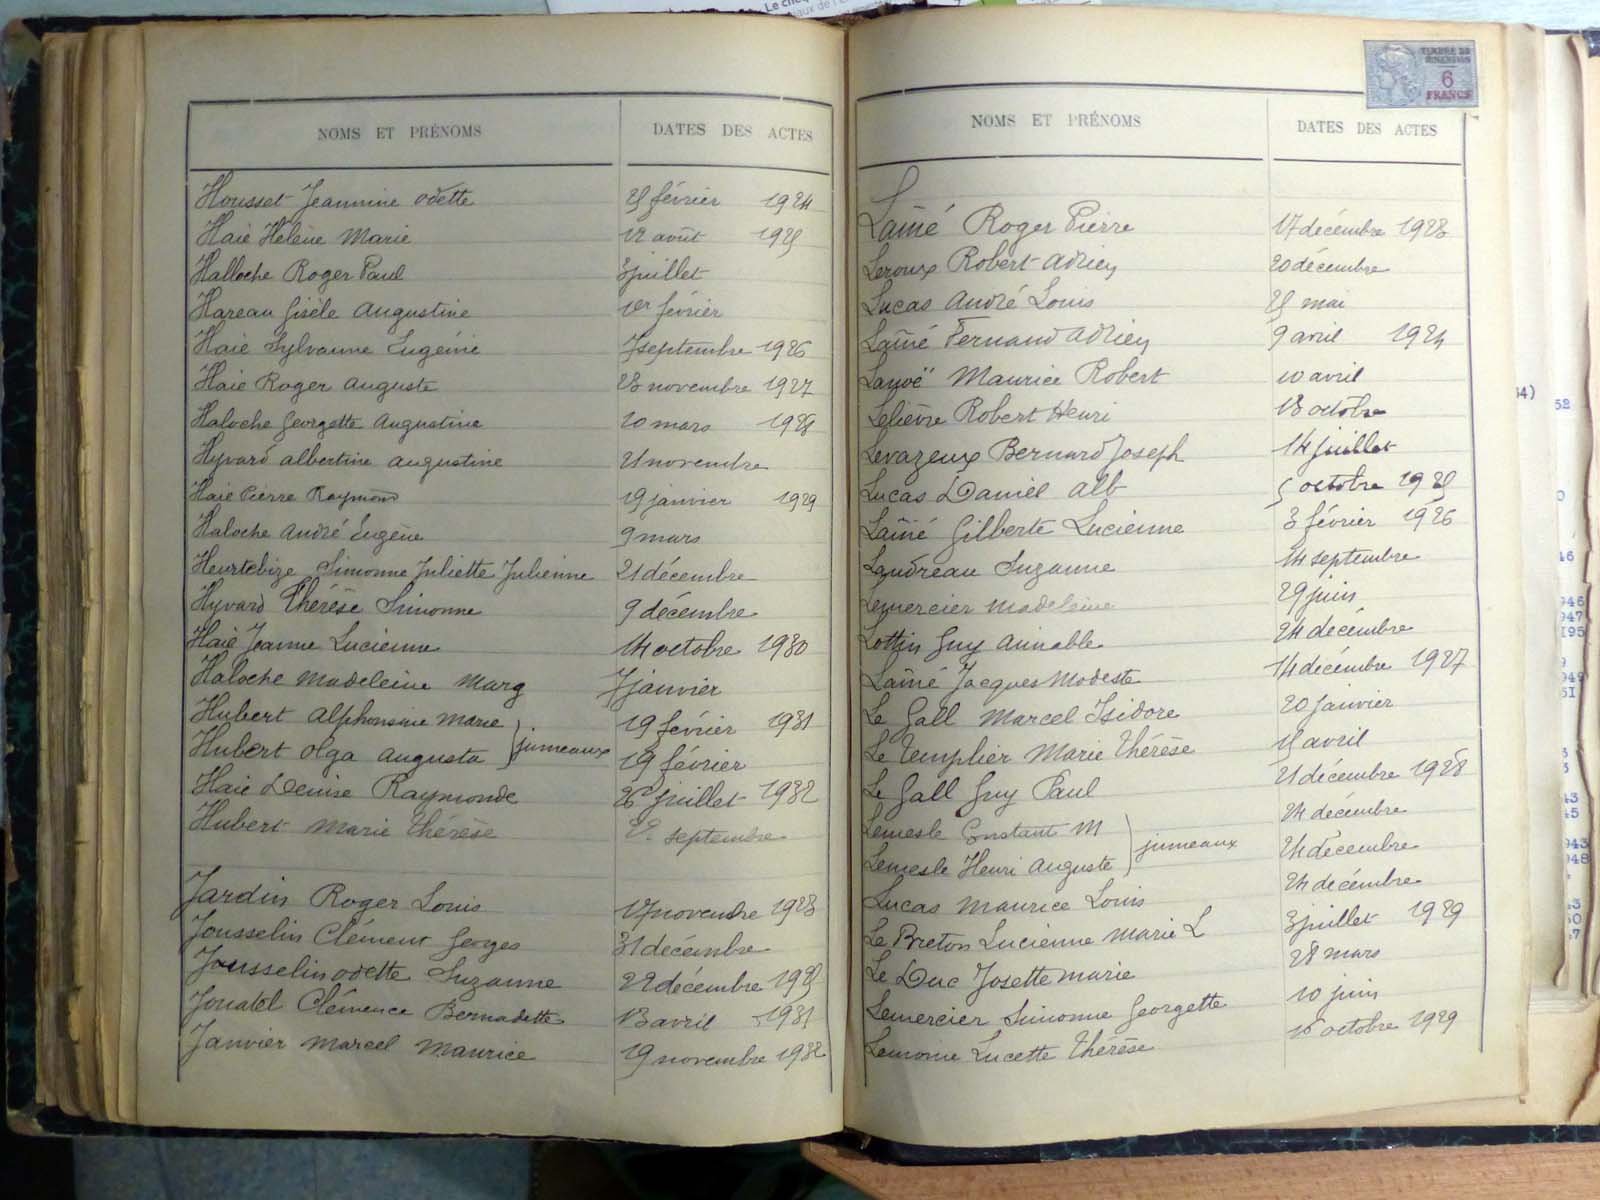 NOMS ET PRÉNOMS DATES DES ACTES
Housset Jeannine Odette 25 février 1924
Haie Hélène Marie 12 août 1925
Halloche Roger Paul 3 juillet
Hareau Gisèle Augustine 1er février
Haie Sylvanne Eugénie 7 septembre 1926
Haie Roger Auguste 28 novembre 1927
Haloche Georgette Augustine 20 mars 1928
Hyvard Albertine Augustine 21 novembre
Haie Pierre Raymond 19 janvier 1929
Haloche André Eugène 9 mars
Heurtebize Simonne Juliette Julienne 21 décembre
Hyvard Thérèse Simonne 9 décembre
Haie Jeanne Lucienne 14 octobre 1930
Haloche Madeleine Marg 7 janvier
Hubert Alphonsine Marie } jumeaux 19 février 1931
Hubert Olga Augusta 19 février
Haie Denise Raymonde 26 juillet 1932
Hubert Marie Thérèse septembre
Jardin Roger Louis 17 novembre 1923
Jousselin Clément Georges 31 décembre
Jousselin Odette Suzanne 22 décembre 1925
Jouatel Clémence Bernadette 13 avril 1931
Janvier Marcel Maurice 19 novembre 1932
TIMBRE DE DIMENSION
6
FRANCS
NOMS ET PRÉNOMS DATES DES ACTES
L
Lainé Roger Pierre 17 décembre 1923
Leroux Robert Adrien 20 décembre
Lucas André Louis 25 mai
Lainé Fernand Adrien 9 avril 1924
Lanoë Maurice Robert 10 avril
Lelièvre Robert Henri 18 octobre
Levazeux Bernard Joseph 14 juillet
Lucas Daniel Alb 5 octobre 1925
Lainé Gilberte Lucienne 3 février 1926
Landreau Suzanne 14 septembre
Lemercier Madeleine 29 juin
Lottin Guy Aimable 24 décembre
Lainé Jacques Modeste 14 décembre 1927
Le Gall Marcel Isidore 20 janvier
Le Templier Marie Thérèse 15 avril
Le Gall Guy Paul 21 décembre 1928
Lemesle Constant M } jumeaux 24 décembre
Lemesle Henri Auguste 24 décembre
Lucas Maurice Louis 24 décembre
Le Breton Lucienne Marie L 3 juillet 1929
Le Duc Josette Marie 28 mars
Lemercier Simonne Georgette 10 juin
Lemoine Lucette Thérèse octobre 1929